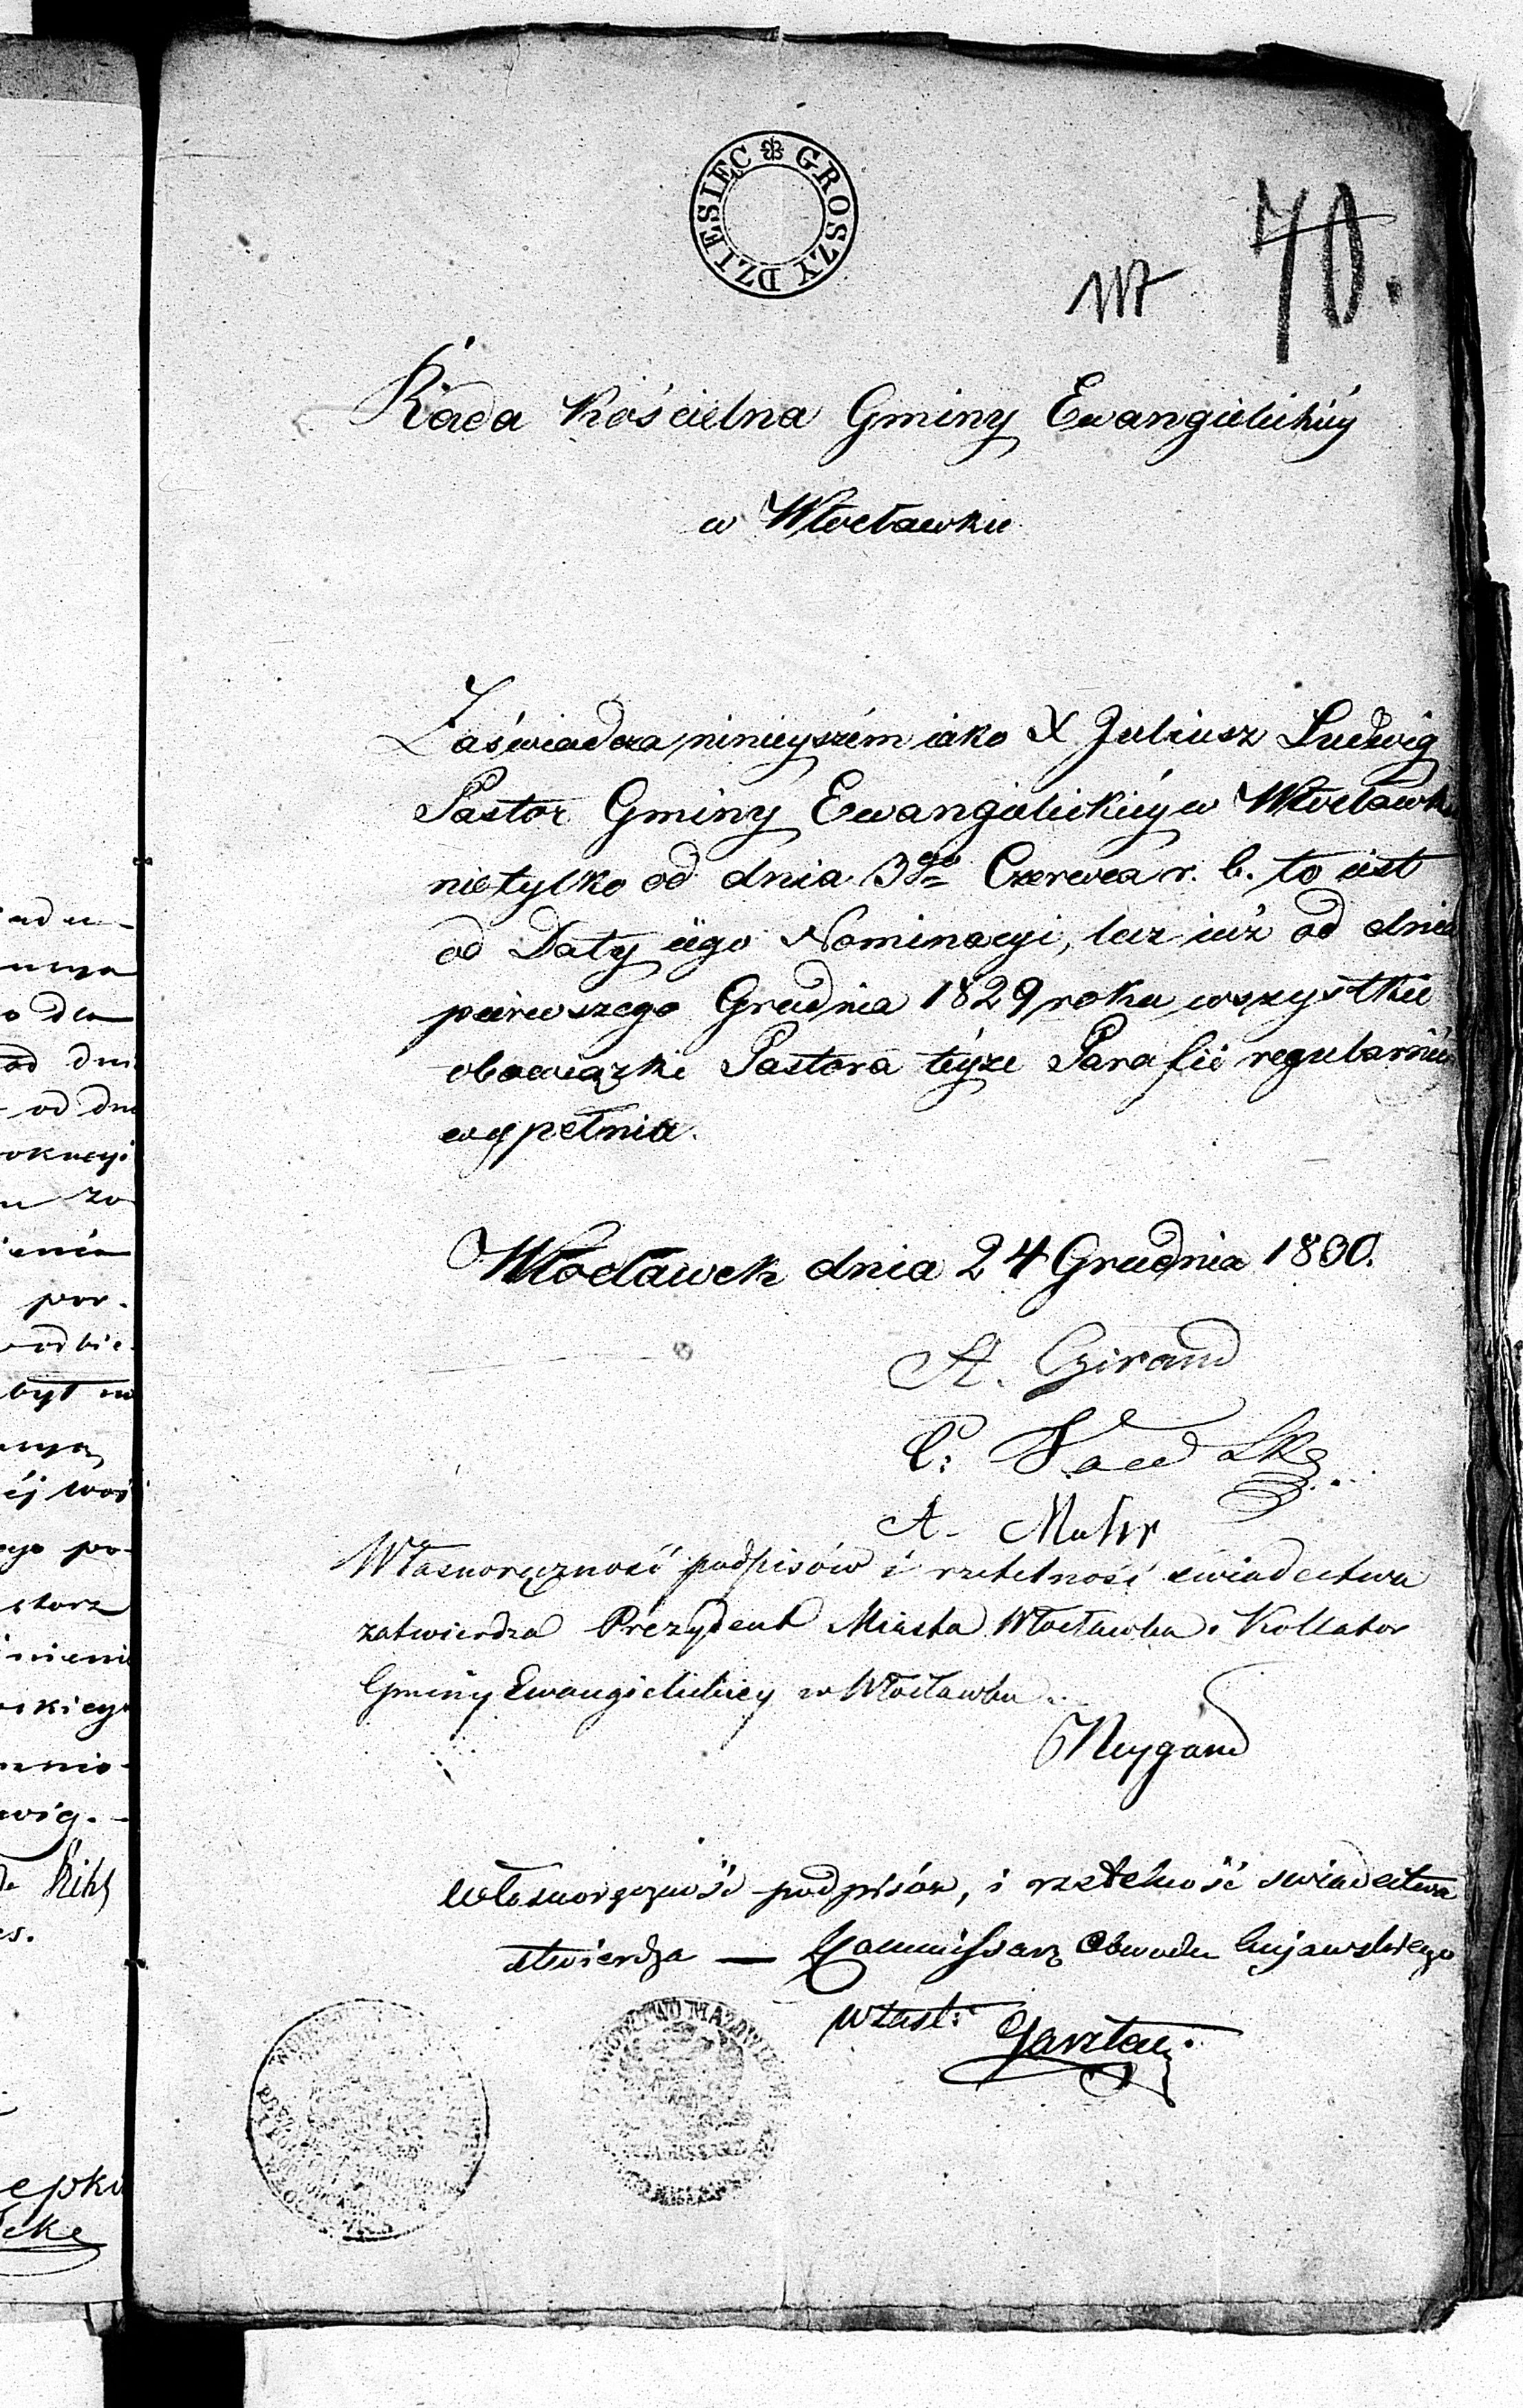 DZIESIĘĆ GROSZY
70.
Rada Kościelna Gminy Ewangielickiéy
w Włocławku
Zaświadcza ninieyszém iako X Juliusz Ludwig
Pastor Gminy Ewangielickiéy w Włocławk
nietylko od dnia 3go Czerwca r. b. to iest
od Daty iégo Nominacyi, lecz iuż od dnia
pierwszego Grudnia 1829 roku wszystkie
obowiązki Pastora téyże Parafii regularnie
wypełnia.
Włocławek dnia 24 Grudnia 1830.
A. Girand
A. Mohr
Własnoręczność podpisów i rzetelność świadectwa
zatwierdza Prezydent Miasta Włocławka. Kollator
Gminy Ewangielickiey w Włocławku.
Własnoręczność podpisów, i rzetelność świadectwa
stwierdza — Kommissarz Obwodu Kujawskiego
w zast: